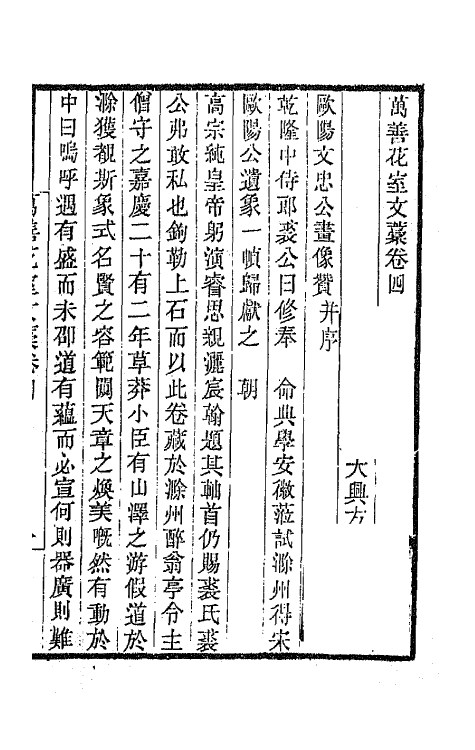 萬善花室文稾卷四
大興方
歐陽文忠公畫像贊并序
乾隆中侍郎裘公曰修奉 命典學安徽蒞試滁州得宋
歐陽公遺象一幀歸獻之 朝
高宗純皇帝躬演睿思親灑宸翰題其軸首仍賜裘氏裘
公弗敢私也鉤勒上石而以此卷藏於滁州醉翁亭令主
僧守之嘉慶二十有二年草莽小臣有山澤之游假道於
滁獲覩斯象式名賢之容範闚天章之煥美嘅然有動於
中曰嗚呼遇有盛而未卲道有蘊而必宣何則器廣則難